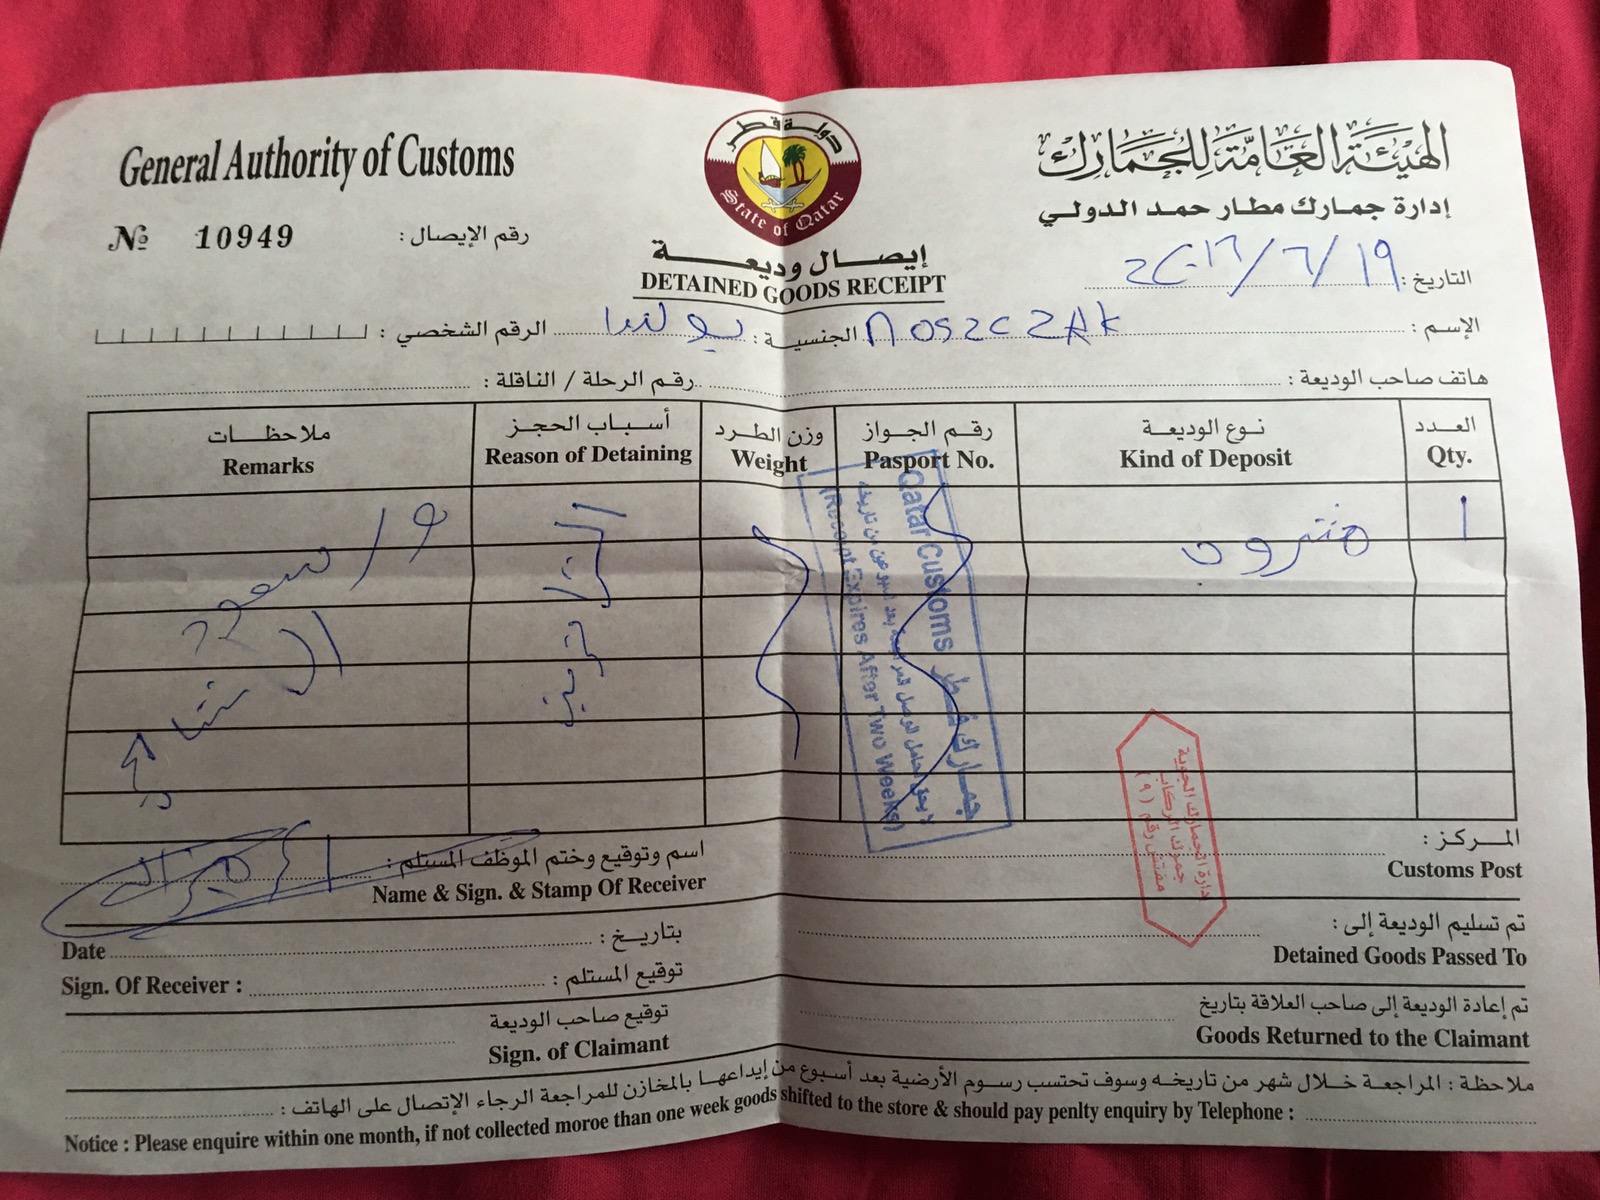 General Authority of Customs
الهيئة العامة للجمارك
دولة قطر
State of Qatar
إدارة جمارك مطار حمد الدولي
№ 10949 رقم الإيصال :
إيصال وديعة
DETAINED GOODS RECEIPT
التاريخ : ٢٠١٦/٦/١٩
الإسم : MOSZCZAK الجنسية : بولندا الرقم الشخصي :
هاتف صاحب الوديعة : رقم الرحلة / الناقلة :
العدد نوع الوديعة رقم الجواز وزن الطرد أسباب الحجز ملاحظات
Qty. Kind of Deposit Pasport No. Weight Reason of Detaining Remarks
١ مشروب
Qatar Customs جمارك قطر
لا يحق لحامل الوصل المراجعة بعد اسبوعين من تاريخه
(Receipt Expires After Two Weeks)
إدارة الجمارك الجوية
جمرك الركاب
مفتش رقم (٩)
المركز :
Customs Post
اسم وتوقيع وختم الموظف المستلم :
Name & Sign. & Stamp Of Receiver
تم تسليم الوديعة إلى :
Detained Goods Passed To
بتاريخ :
Date
توقيع المستلم :
Sign. Of Receiver :
تم إعادة الوديعة إلى صاحب العلاقة بتاريخ
Goods Returned to the Claimant
توقيع صاحب الوديعة
Sign. of Claimant
ملاحظة : المراجعة خلال شهر من تاريخه وسوف تحتسب رسوم الأرضية بعد أسبوع من إيداعها بالمخازن للمراجعة الرجاء الإتصال على الهاتف :
Notice : Please enquire within one month, if not collected moroe than one week goods shifted to the store & should pay penlty enquiry by Telephone :